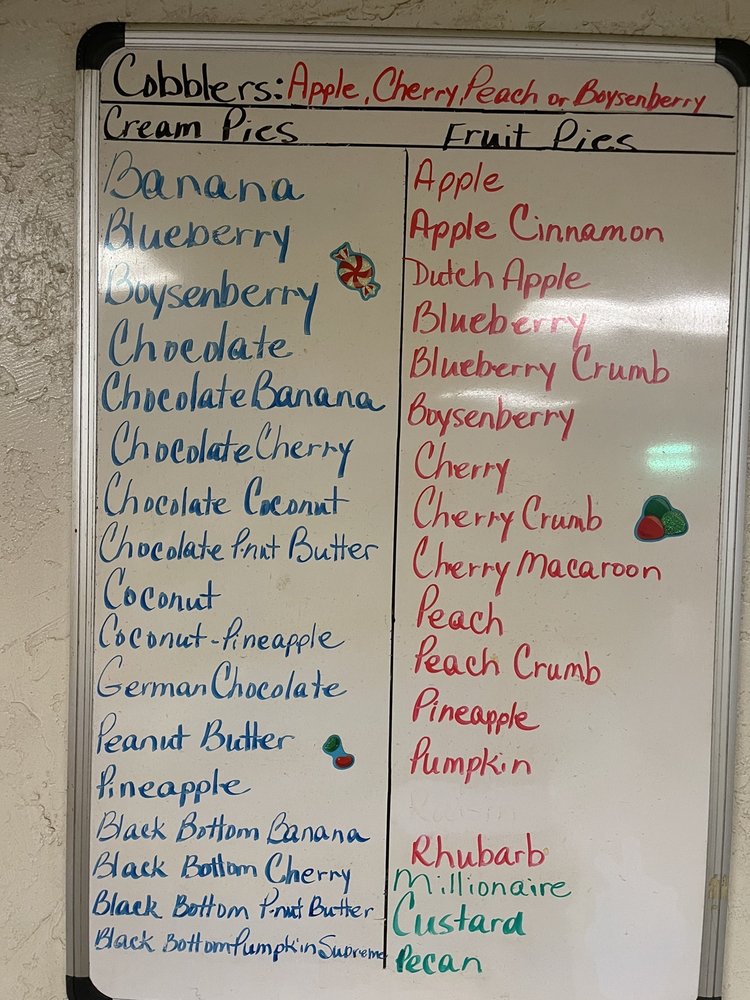 Cobblers: Apple, Cherry, Peach or Boysenberry
Cream Pies
Banana
Blueberry
Boysenberry
Chocolate
Chocolate Banana
Chocolate Cherry
Chocolate Coconut
Chocolate P-nut Butter
Coconut
Coconut-Pineapple
German Chocolate
Peanut Butter
Pineapple
Black Bottom Banana
Black Bottom Cherry
Black Bottom P-nut Butter
Black Bottom Pumpkin Supreme
Fruit Pies
Apple
Apple Cinnamon
Dutch Apple
Blueberry
Blueberry Crumb
Boysenberry
Cherry
Cherry Crumb
Cherry Macaroon
Peach
Peach Crumb
Pineapple
Pumpkin
Rhubarb
Millionaire
Custard
Pecan